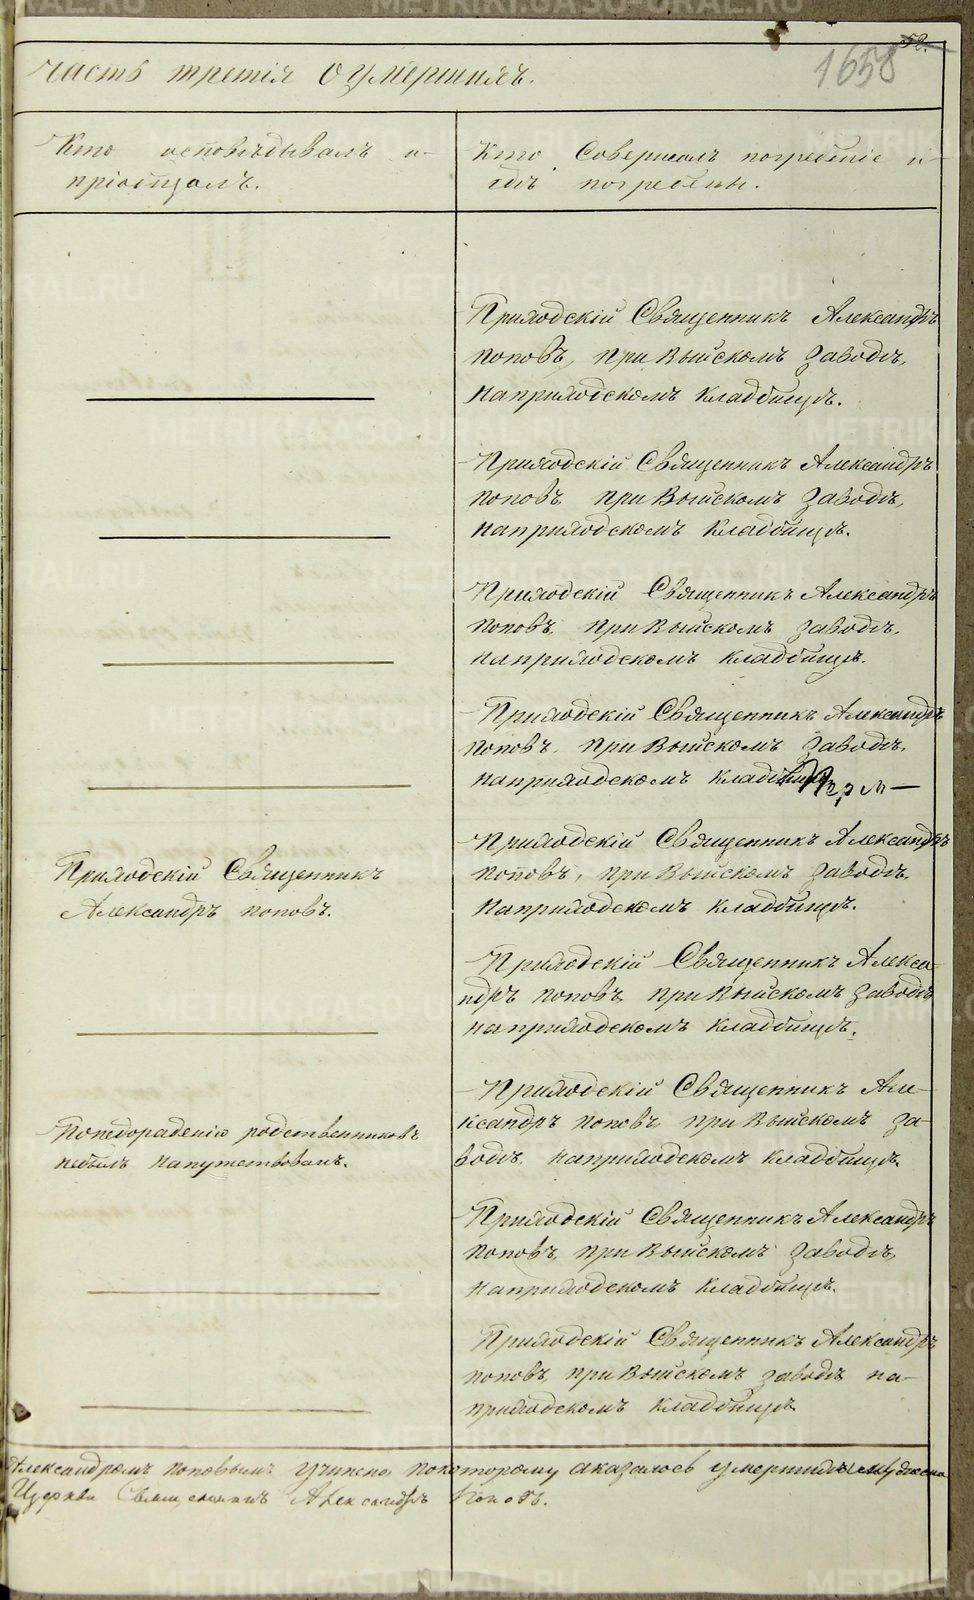 52.
1658
Часть третія о умершихъ.
Кто исповѣдывалъ и
пріобщалъ.
Кто Совершалъ погребеніе и
гдѣ погребены.
Приходскій Священникъ Александръ
поповъ, при Выйскомъ заводѣ,
наприходскомъ кладбищѣ.
Приходскій Священникъ Александръ
поповъ, при Выйскомъ заводѣ,
наприходскомъ кладбищѣ.
Приходскій Священникъ Александръ
поповъ, при Выйскомъ заводѣ,
наприходскомъ кладбищѣ.
Приходскій Священникъ Александръ
поповъ, при Выйскомъ заводѣ,
наприходскомъ
Приходскій Священникъ
Александръ поповъ.
Приходскій Священникъ Александръ
поповъ, при Выйскомъ заводѣ,
наприходскомъ кладбищѣ.
Приходскій Священникъ Алекса-
ндръ поповъ, при Выйскомъ заводѣ
наприходскомъ кладбищѣ.
Понедорадѣнію родственниковъ
небылъ напутствованъ.
Приходскій Священникъ Але-
ксандръ поповъ, при Выйскомъ за-
водѣ, наприходскомъ кладбищѣ.
Приходскій Священникъ Александръ
поповъ, при Выйскомъ заводѣ,
наприходскомъ кладбищѣ.
Приходскій Священникъ Александръ
поповъ, при Выйскомъ заводѣ на-
приходскомъ кладбищѣ
Александромъ поповымъ учинена покоторому аказалось умершихъ
Церкви Священникъ Александръ Поповъ.
METRIKI.GASO-URAL.RU